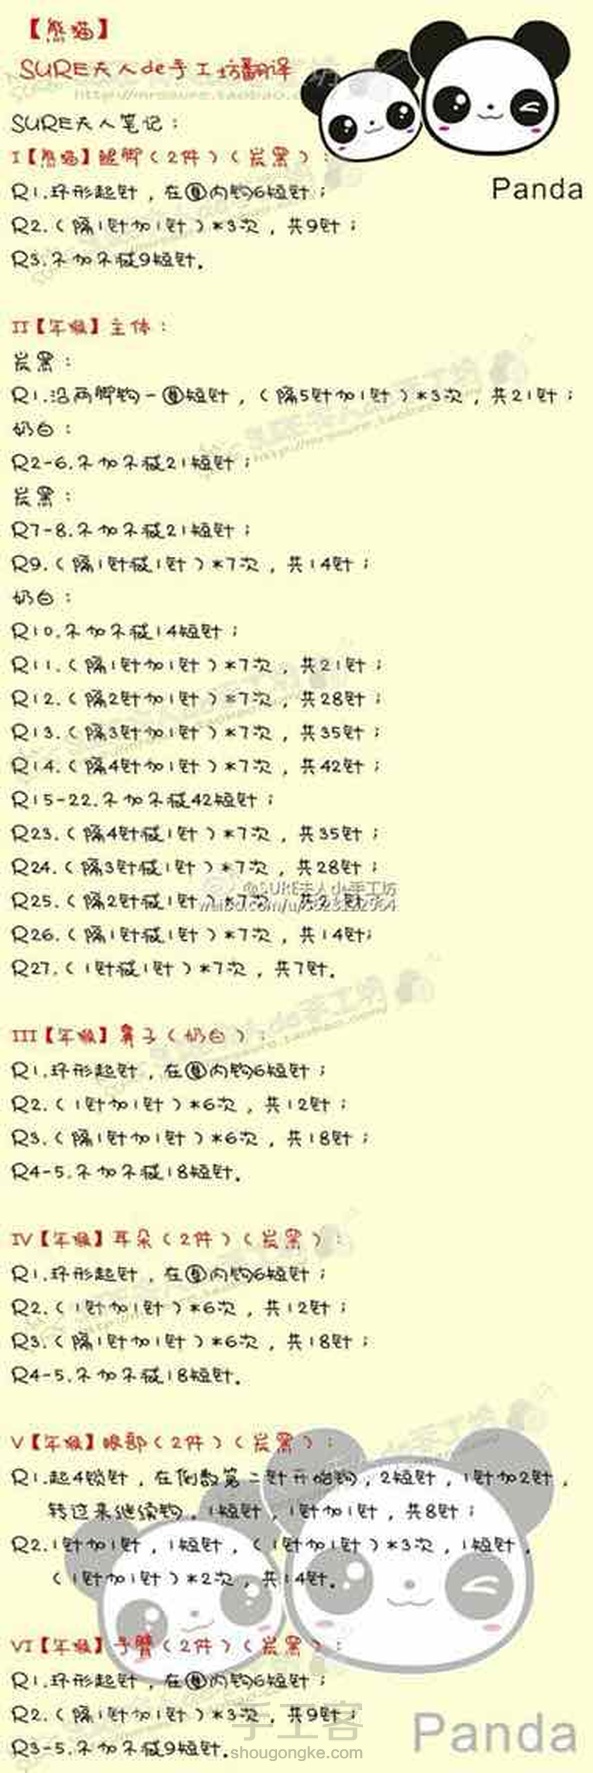 【熊猫】
SURE夫人de手工坊翻译
Panda
SURE夫人笔记：
I【熊猫】腿脚（2件）（炭黑）：
R1.环形起针，在圈内钩6短针；
R2.（隔1针加1针）*3次，共9针；
R3.不加不减9短针。
II【年级】主体：
炭黑：
R1.沿两脚钩一圈短针，（隔5针加1针）*3次，共21针；
奶白：
R2-6.不加不减21短针；
炭黑：
R7-8.不加不减21短针；
R9.（隔1针减1针）*7次，共14针；
奶白：
R10.不加不减14短针；
R11.（隔1针加1针）*7次，共21针；
R12.（隔2针加1针）*7次，共28针；
R13.（隔3针加1针）*7次，共35针；
R14.（隔4针加1针）*7次，共42针；
R15-22.不加不减42短针；
R23.（隔4针减1针）*7次，共35针；
R24.（隔3针减1针）*7次，共28针；
@SURE夫人de手工坊
R25.（隔2针减1针）*7次，共21针；
R26.（隔1针减1针）*7次，共14针；
R27.（1针减1针）*7次，共7针。
III【年级】鼻子（奶白）：
R1.环形起针，在圈内钩6短针；
R2.（1针加1针）*6次，共12针；
R3.（隔1针加1针）*6次，共18针；
R4-5.不加不减18短针。
IV【年级】耳朵（2件）（炭黑）：
R1.环形起针，在圈内钩6短针；
R2.（1针加1针）*6次，共12针；
R3.（隔1针加1针）*6次，共18针；
R4-5.不加不减18短针。
V【年级】眼部（2件）（炭黑）：
R1.起4锁针，在倒数第二针开始钩，2短针，1针加2针，
转过来继续钩，1短针，1针加1针，共8针；
R2.1针加1针，1短针，（1针加1针）*3次，1短针，
（1针加1针）*2次，共14针。
VI【年级】手臂（2件）（炭黑）：
R1.环形起针，在圈内钩6短针；
R2.（隔1针加1针）*3次，共9针；
R3-5.不加不减9短针。
手工客
shougongke.com
Panda